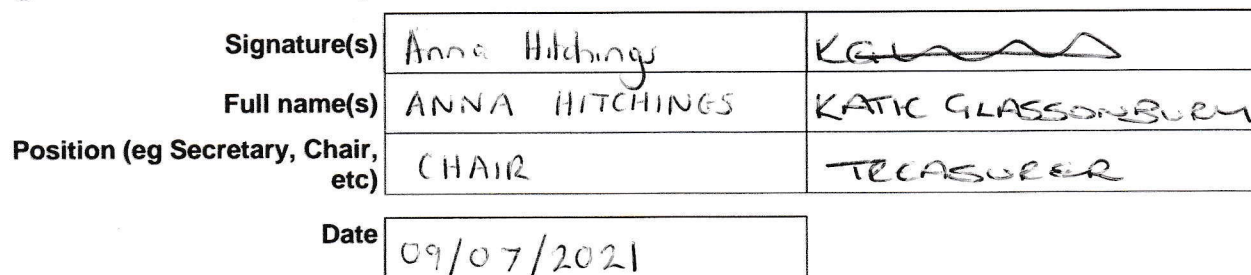 Signature(s) Anna Hitchings KG
Full name(s) ANNA HITCHINGS KATIE GLASSONBURY
Position (eg Secretary, Chair, etc) CHAIR TREASURER
Date 09/07/2021